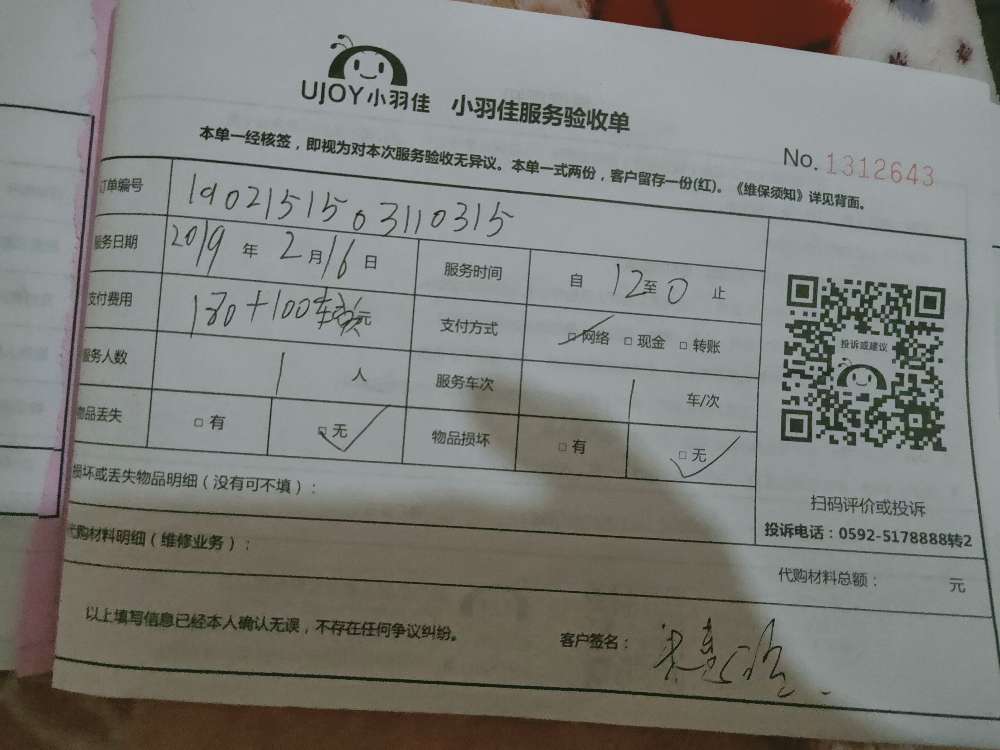 UJOY小羽佳 小羽佳服务验收单
No. 1312643
本单一经核签，即视为对本次服务验收无异议。本单一式两份，客户留存一份(红)。《维保须知》详见背面。
订单编号 1902151503110315
服务日期 2019 年 2 月 16 日 服务时间 自 12 至 0 止
支付费用 180+100车 元 支付方式 □网络 □现金 □转账
服务人数 1 人 服务车次 1 车/次
物品丢失 □有 □无 物品损坏 □有 □无
投诉或建议
扫码评价或投诉
投诉电话：0592-5178888转2
损坏或丢失物品明细（没有可不填）：
代购材料明细（维修业务）：
代购材料总额： 元
以上填写信息已经本人确认无误，不存在任何争议纠纷。
客户签名：